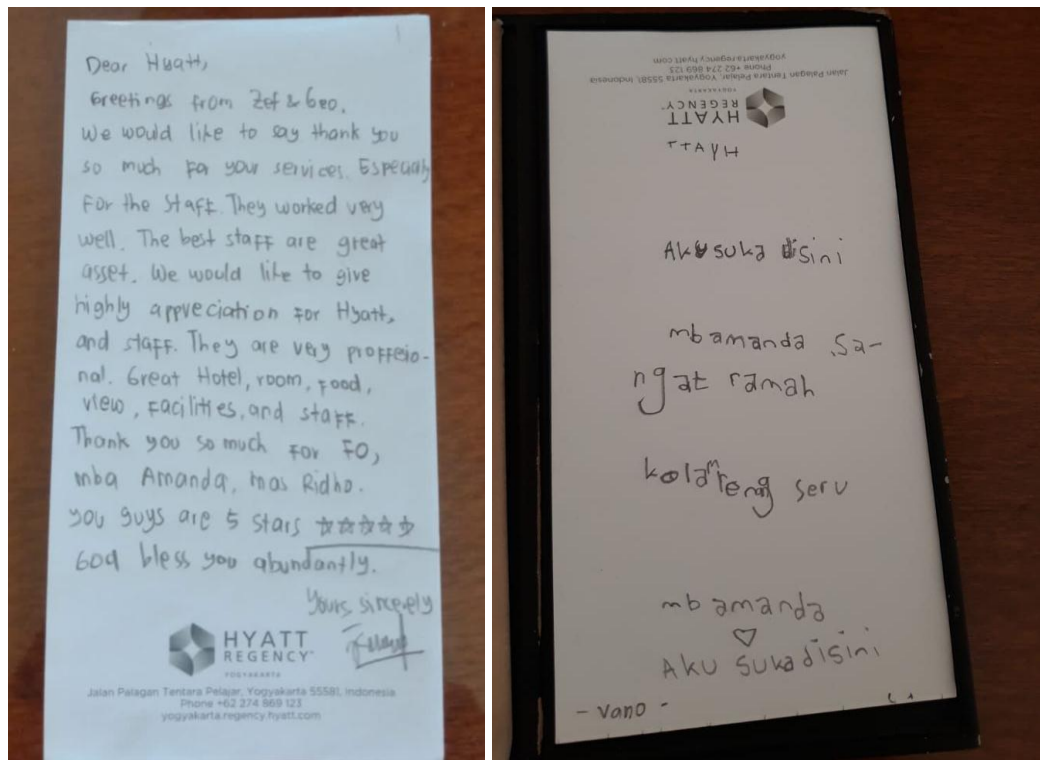 Dear Hyatt,
Greetings from Zef & Geo.
We would like to say thank you
so much for your services. Especially
For the staff. They worked very
well. The best staff are great
asset. We would like to give
highly appreciation for Hyatt,
and staff. They are very proffesio-
nal. Great Hotel, room, food,
view, facilities, and staff.
Thank you so much for FO,
mba Amanda, mas Ridho.
you guys are 5 stars ☆☆☆☆☆
God bless you abundantly.
Yours sincerely
HYATT
REGENCY™
YOGYAKARTA
Jalan Palagan Tentara Pelajar, Yogyakarta 55581, Indonesia
Phone +62 274 869 123
yogyakarta.regency.hyatt.com
yogyakarta.regency.hyatt.com
Phone +62 274 869 123
Jalan Palagan Tentara Pelajar, Yogyakarta 55581, Indonesia
YOGYAKARTA
REGENCY™
HYATT
HyAtt
Aku suka disini
mb amanda sa-
ngat ramah
kolam reng seru
mb amanda
♡
Aku suka disini
- vano -